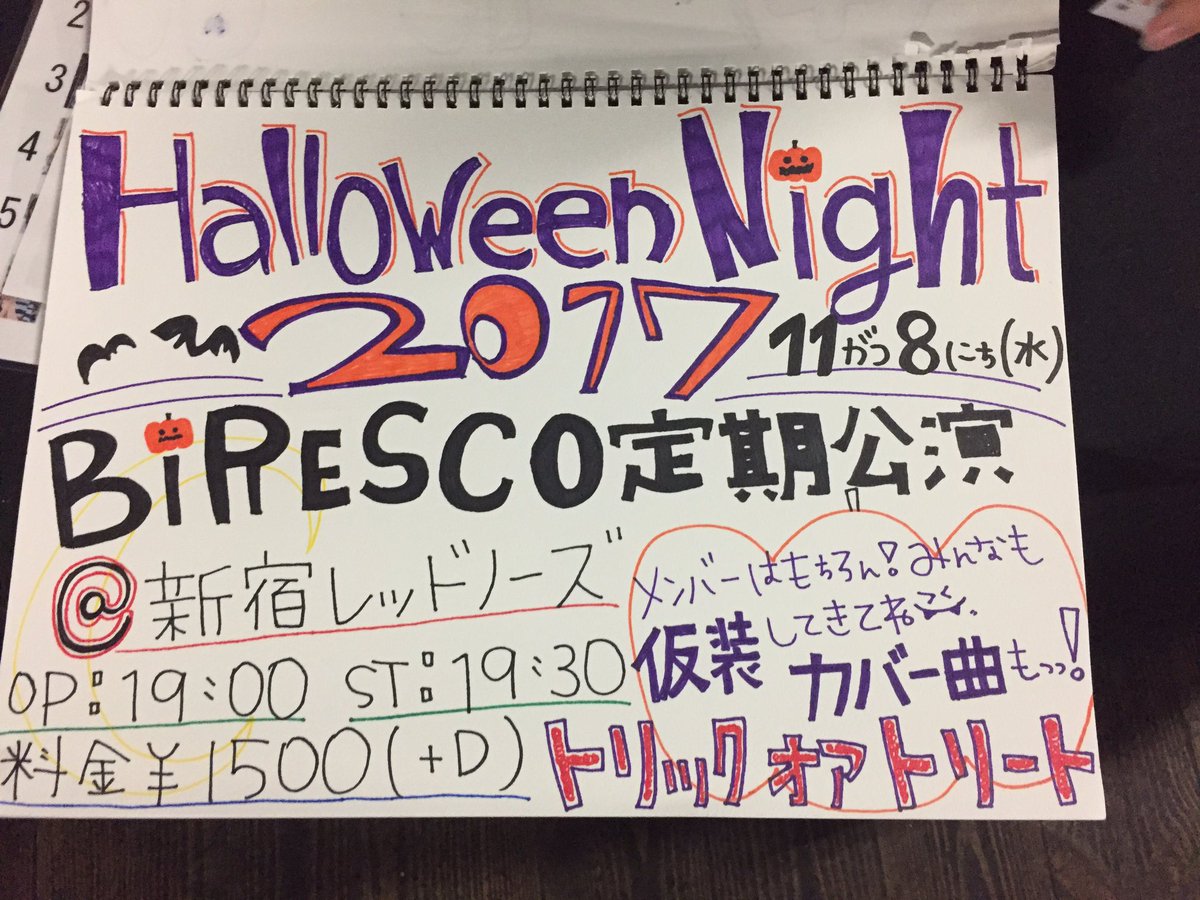 2
3
4
5
Halloween Night
2017 11がつ8にち(水)
BiPRESCO定期公演
@新宿レッドノーズ
OP:19:00 ST:19:30
料金¥1500(+D)
メンバーはもちろん!みんなも
仮装してきてね
カバー曲もっっ!
トリック オア トリート